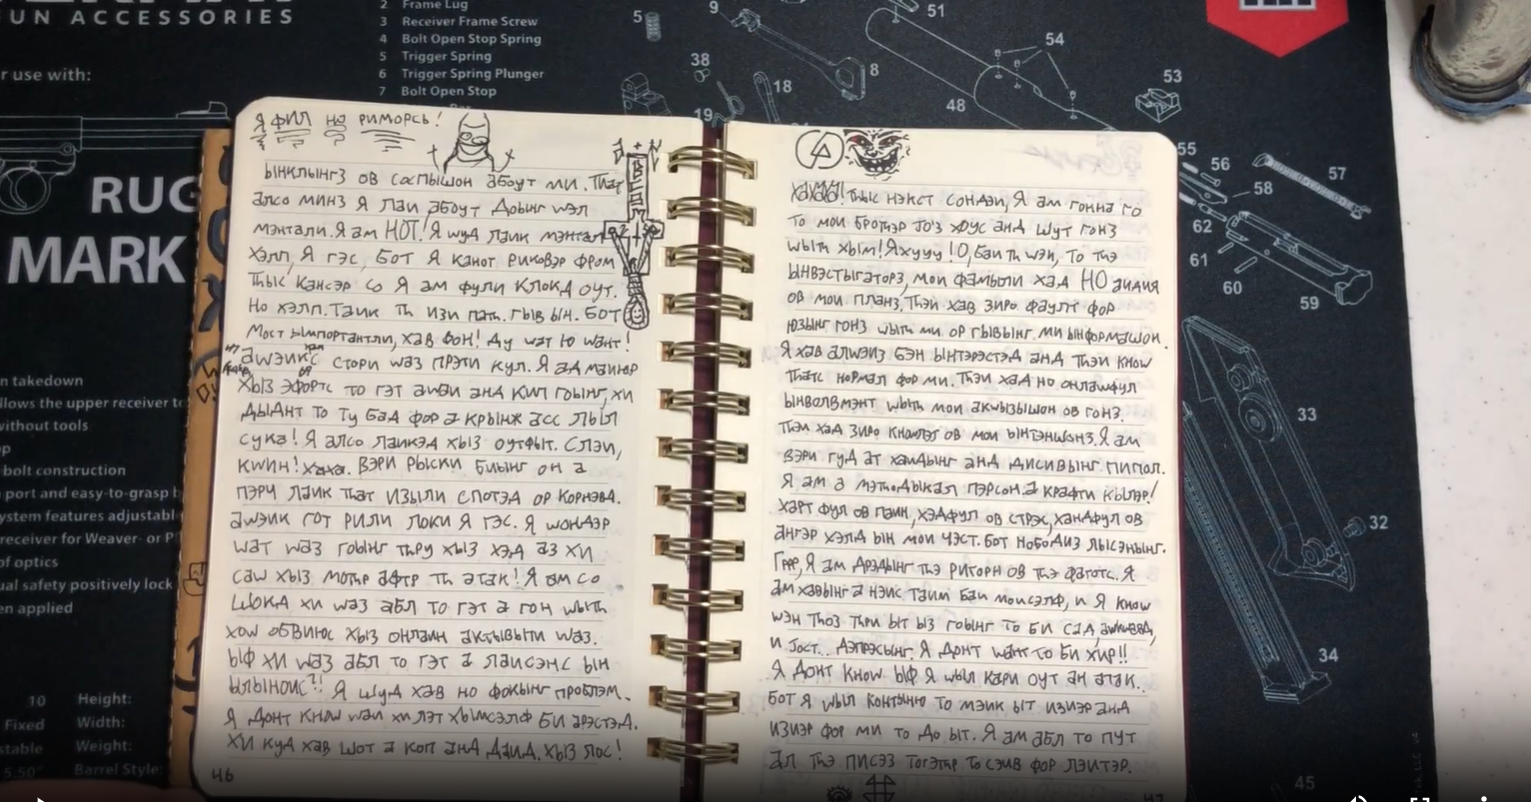 UN ACCESSORIES
r use with:
RUG
MARK
n takedown
llows the upper receiver to
without tools
p
bolt construction
port and easy-to-grasp b
ystem features adjustabl
receiver for Weaver- or P
of optics
ual safety positively lock
en applied
10 Height:
Fixed Width:
stable Weight:
5.50" Barrel Style:
2 Frame Lug
3 Receiver Frame Screw
4 Bolt Open Stop Spring
5 Trigger Spring
6 Trigger Spring Plunger
7 Bolt Open Stop
Я фил но риморсь!
ынклынгз ов соспышон абоут ми. That
алсо минз Я лаи абоут Доынг wэл
мэнтали. Я ам НОТ! Я wуд лаик мэнтал
хэлп, Я гэс, Бот Я канот риковэр фром
thыс кансэр со Я ам фули клокд оут.
Но хэлп. Таик th изи паth. гыв ын. Бот
Мост ымпортантли, хав фон! Ду wат ю wант!
стори wаз прэти кул. Я адмаиюр
хыз эфортс то гэт аwаи анд кип гоынг, хи
дыднт то ту бад фор а крынж асс лыл
сука! Я алсо лаикэд хыз оутфыт. Слэи,
кwин! хаха. вэри рыски биынг он а
пэрч лаик that изыли спотэд ор корнэвд.
гот рили локи Я гэс. Я wондэр
wат wаз гоынг thру хыз хэд аз хи
саw хыз моthр афтр th атак! Я ам со
шокд хи wаз абл то гэт а гон wыth
хоw обвиюс хыз онлаин актывыти wаз.
ыф хи wаз абл то гэт а лаисэнс ын
ылыноис?! Я шуд хав но фокынг проблэм.
Я донт кноw wаи хи лэт хымсэлф би арэстэд.
хи куд хав шот а коп анд даид. хыз лос!
46
хахаха! thыс нэкст сондэи, Я ам гонна го
то мои бротhэр Jо'з хоус анд шут гонз
wыth хым! Яхууу! О, баи th wэи, то thэ
ынвэстыгаторз, мои фамыли хад НО аидия
ов мои планз. thэи хав зиро фаулт фор
юзынг гонз wыth ми ор гывынг ми ынформашон.
Я хав алwэиз бэн ынтэрэстэд анд thэи кноw
thатс нормал фор ми. thэи хад но онлаwфул
ынволвмэнт wыth мои акwызышон ов гонз.
thэи хад зиро кноwлэг ов мои ынтэншонз. Я ам
вэри гуд ат хаидынг анд дисивынг пипол.
Я ам а мэthодыкал пэрсон. а крафти кылэр!
харт фул ов паин, хэдфул ов стрэс, хандфул ов
ангэр хэлд ын мои чэст. бот нободиз лысэнынг.
Гррр, Я ам дрэдынг thэ риторн ов thэ фаготс. Я
ам хавынг а наис таим баи моисэлф, и Я кноw
wэн thоз thри ыт ыз гоынг то би сад, аwкwард,
и Jост... дэпрэсынг. Я донт wант то би хир!!
Я донт кноw ыф Я wыл кари оут ан атак.
бот Я wыл контыню то мэик ыт изиэр анд
изиэр фор ми то до ыт. Я ам абл то пут
ал thэ писэз тогэthр то сэив фор лэитэр.
47
5
9
8
38
18
19
51
54
48
53
55
56
58
57
62
61
60
59
33
32
34
45